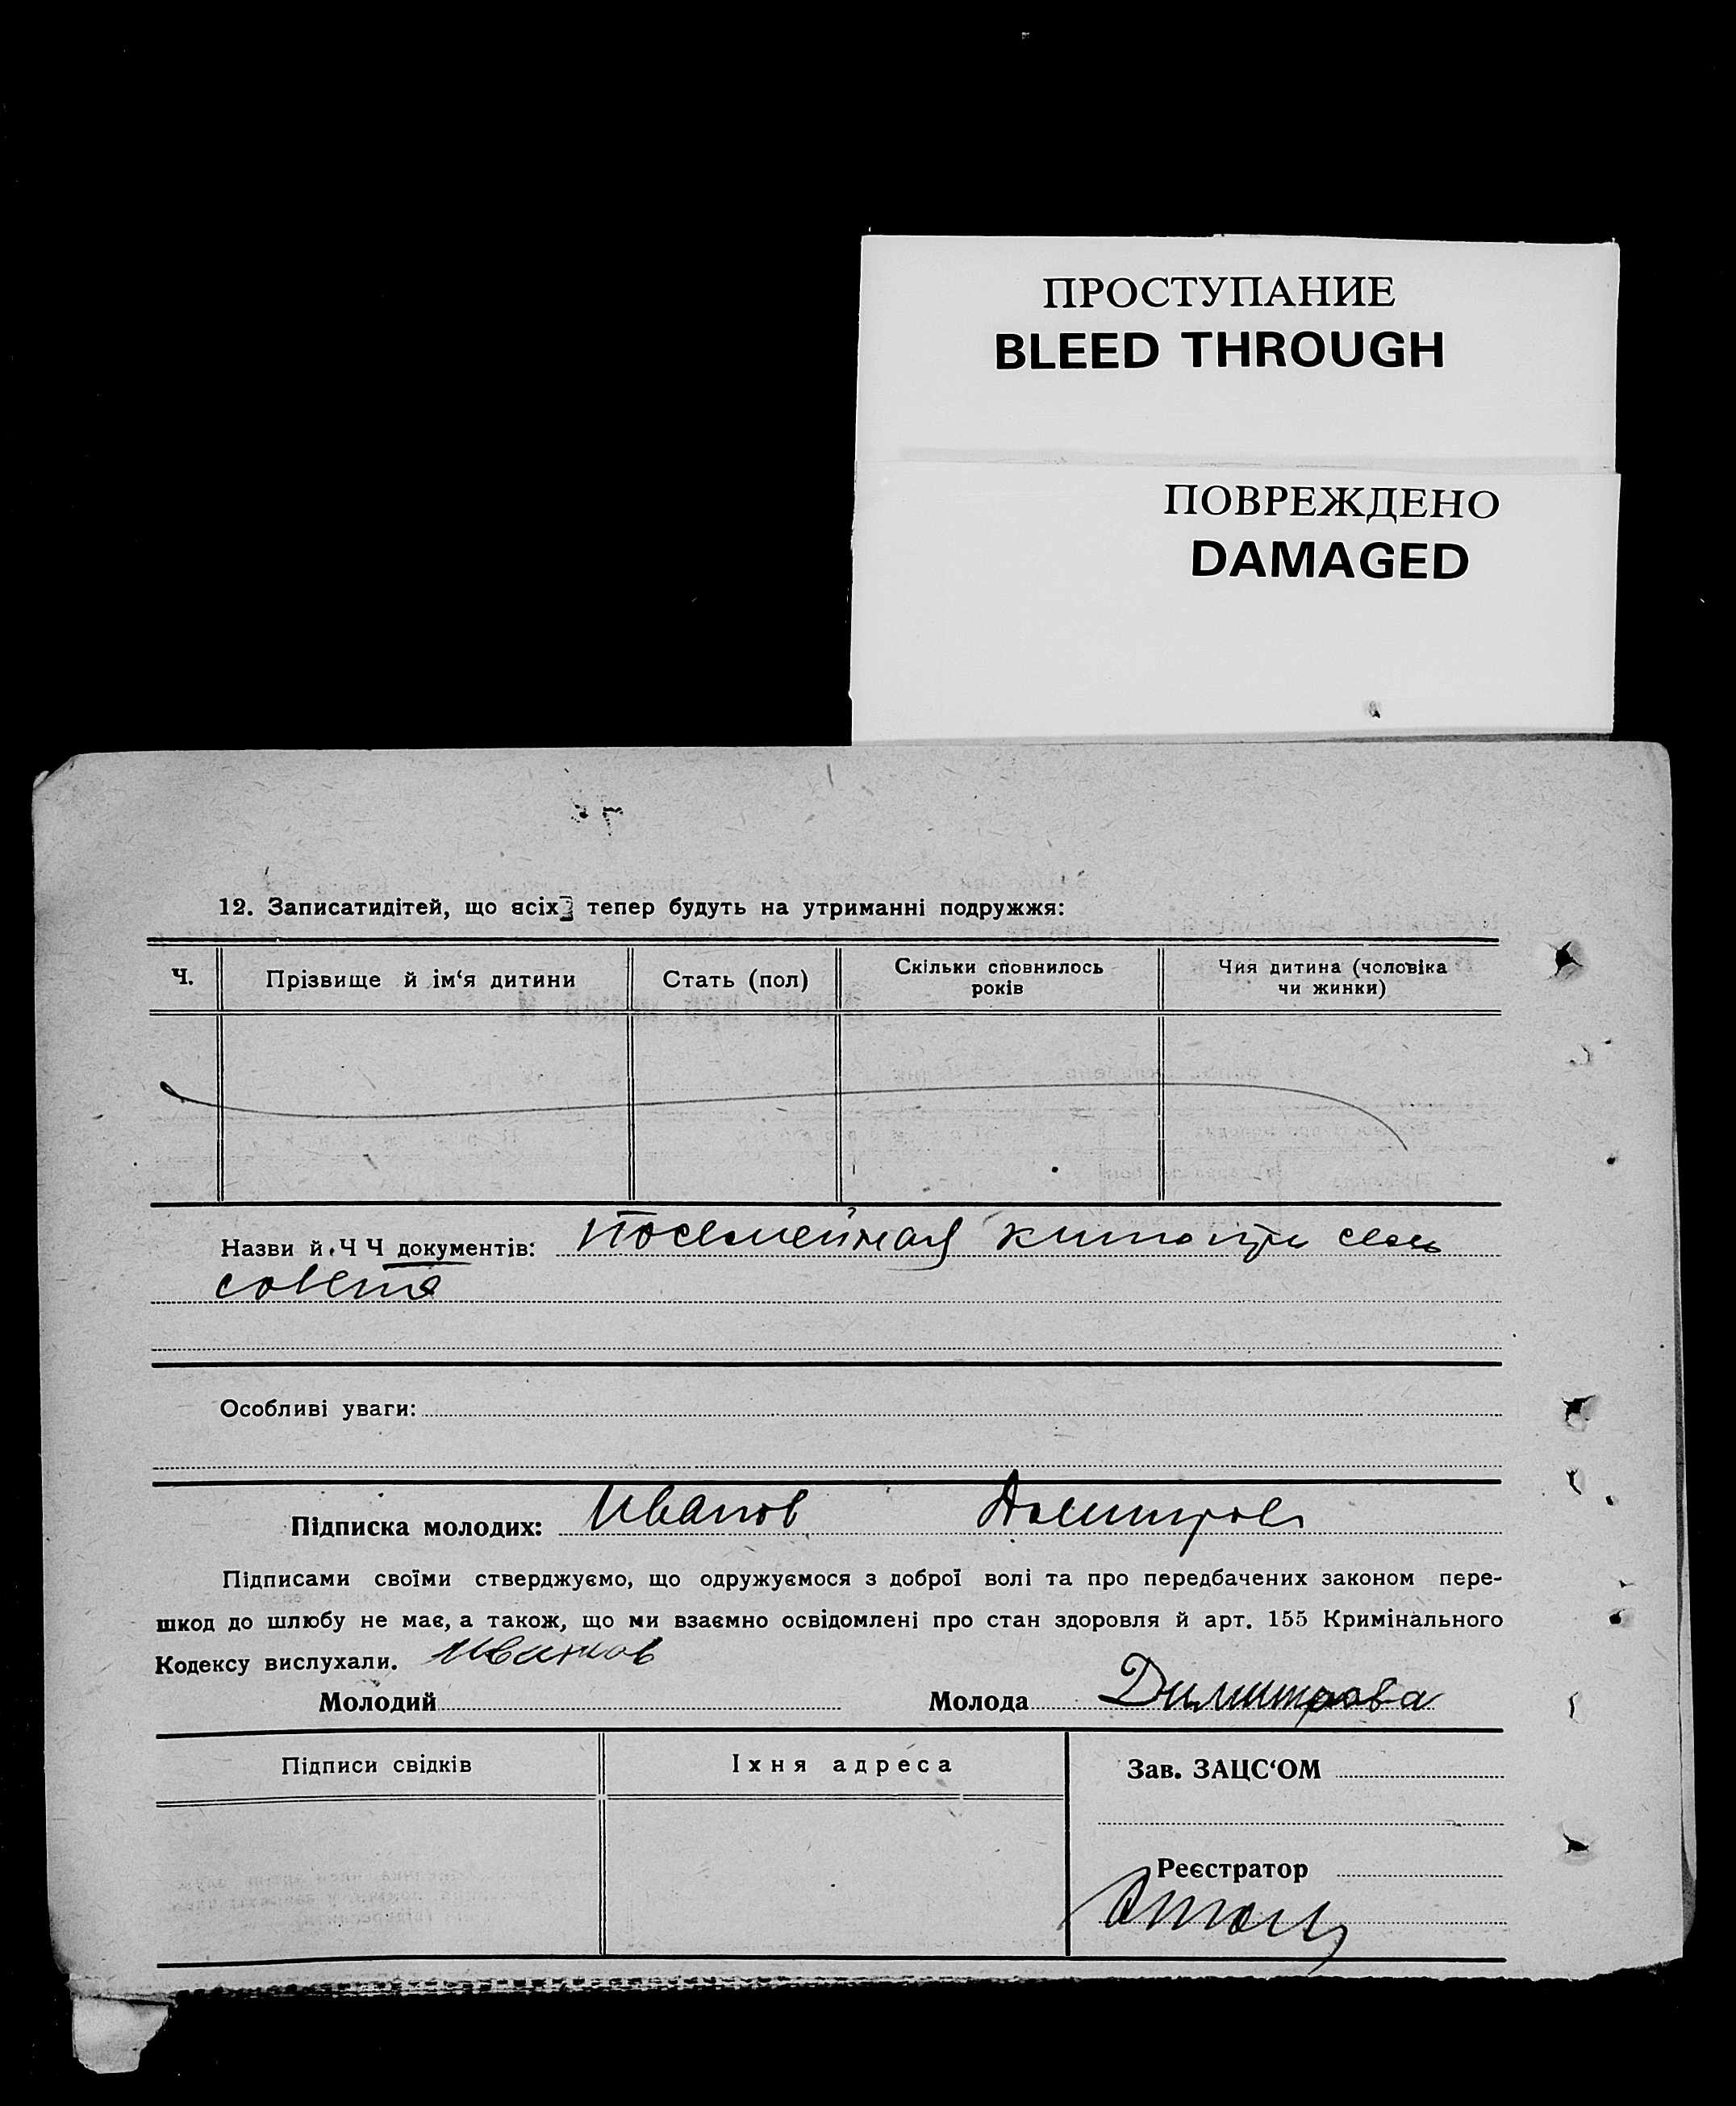 ПРОСТУПАНИЕ
BLEED THROUGH
ПОВРЕЖДЕНО
DAMAGED
12. Записатидітей, що всіх тепер будуть на утриманні подружжя:
Ч.
Прізвище й ім‘я дитини
Стать (пол)
Скільки сповнилось
років
Чия дитина (чоловіка
чи жинки)
Назви й Ч Ч документів: Посемейная при
совета
Особливі уваги:
Підписка молодих: Иванов
Підписами своїми стверджуємо, що одружуємося з доброї волі та про передбачених законом пере-
шкод до шлюбу не має, а також, що ми взаємно освідомлені про стан здоровля й арт. 155 Кримінального
Кодексу вислухали. Иванов
Молодий
Молода Димитрова
Підписи свідків
Їхня адреса
Зав. ЗАЦС‘ОМ
Реєстратор